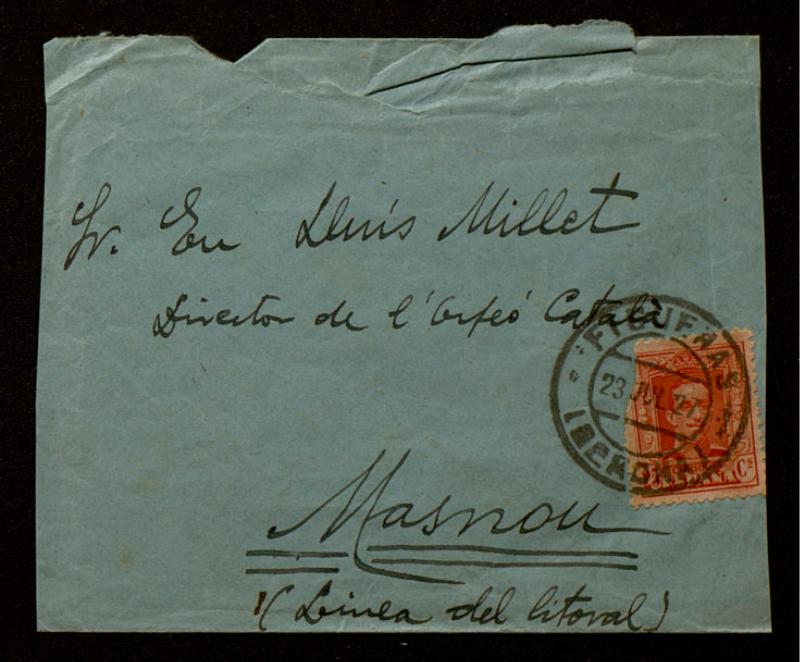 Sr. En Lluís Millet
Director de l'Orfeó Català
FIGUERAS
23 JUL 27
(GERONA)
Cs
Masnou
(Linea del litoral)